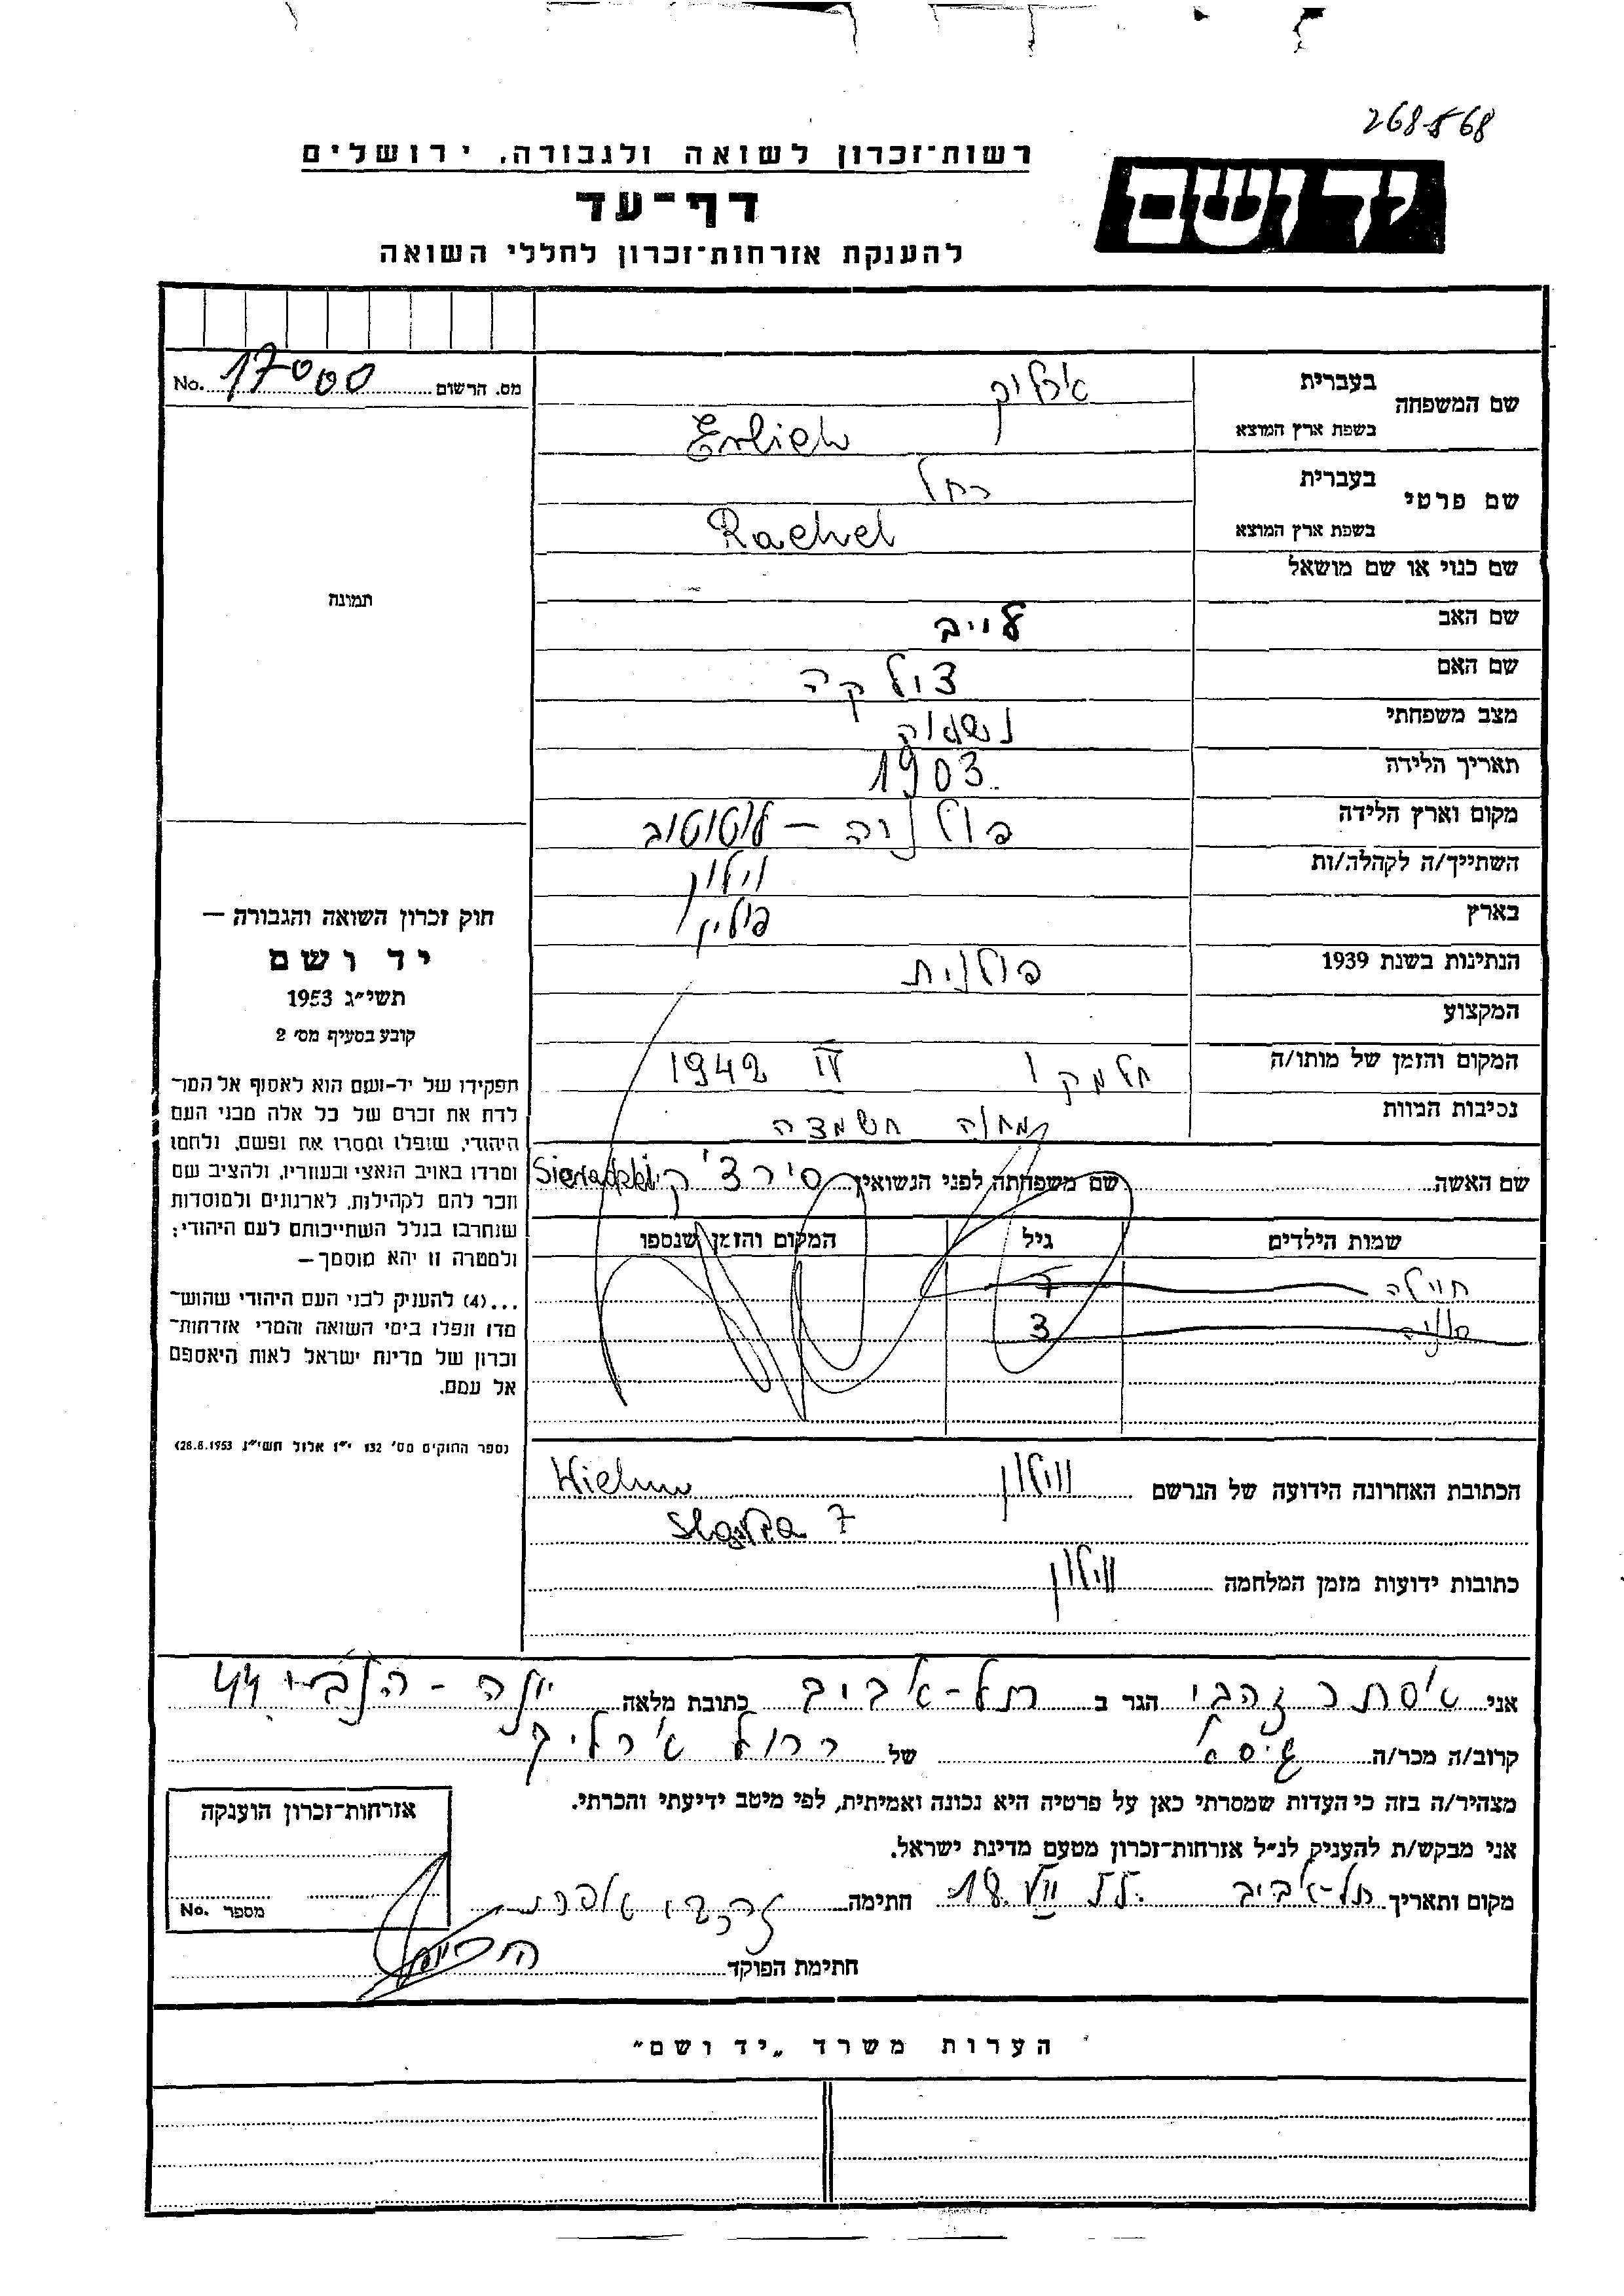 268568
רשות־זכרון לשואה ולגבורה, ירושלים
יד ושם
דף־עד
להענקת אזרחות־זכרון לחללי השואה
מס. הרשום 17000 No.
שם המשפחה
בעברית ארליך
בשפת ארץ המוצא Erlich
שם פרטי
בעברית רחל
בשפת ארץ המוצא Rachel
שם כנוי או שם מושאל
שם האב לייב
שם האם
מצב משפחתי נשואה
תאריך הלידה 1903
מקום וארץ הלידה פולניה – לוטוטוב
השתייך/ה לקהלה/ות וילון
בארץ פולין
הנתינות בשנת 1939 פולנית
המקצוע
המקום והזמן של מותו/ה חלמנו IV 1942
נסיבות המוות מחנה השמדה
שם האשה שם משפחתה לפני הנשואין Sieradzki
שמות הילדים גיל המקום והזמן שנספו
7
3
תמונה
חוק זכרון השואה והגבורה —
יד ושם
תשי״ג 1953
קובע בסעיף מס׳ 2
תפקידו של יד-ושם הוא לאסוף אל המו־
לדת את זכרם של כל אלה מבני העם
היהודי, שנפלו ומסרו את נפשם, נלחמו
ומרדו באויב הנאצי ובעוזריו, ולהציב שם
וזכר להם לקהילות, לארגונים ולמוסדות
שנחרבו בגלל השתייכותם לעם היהודי;
ולמטרה זו יהא מוסמך—
...(4) להעניק לבני העם היהודי שהוש־
מדו ונפלו בימי השואה והמרי אזרחות־
זכרון של מדינת ישראל לאות היאספם
אל עמם.
(ספר החוקים מס׳ 132 י״ז אלול תשי״ג 28.8.1953)
הכתובת האחרונה הידועה של הנרשם ווילון Wielun
7
כתובות ידועות מזמן המלחמה ווילון
אני אסתר זהבי הגר ב תל-אביב כתובת מלאה יונה-הנביא 44
קרוב/ה מכר/ה גיסה של רחל ארליך
מצהיר/ה בזה כי העדות שמסרתי כאן על פרטיה היא נכונה ואמיתית, לפי מיטב ידיעתי והכרתי.
אני מבקש/ת להעניק לנ״ל אזרחות־זכרון מטעם מדינת ישראל.
מקום ותאריך תל-אביב 18 VII חתימה זהבי אסתר
חתימת הפוקד
אזרחות־זכרון הוענקה
מספר No.
הערות משרד „יד ושם״